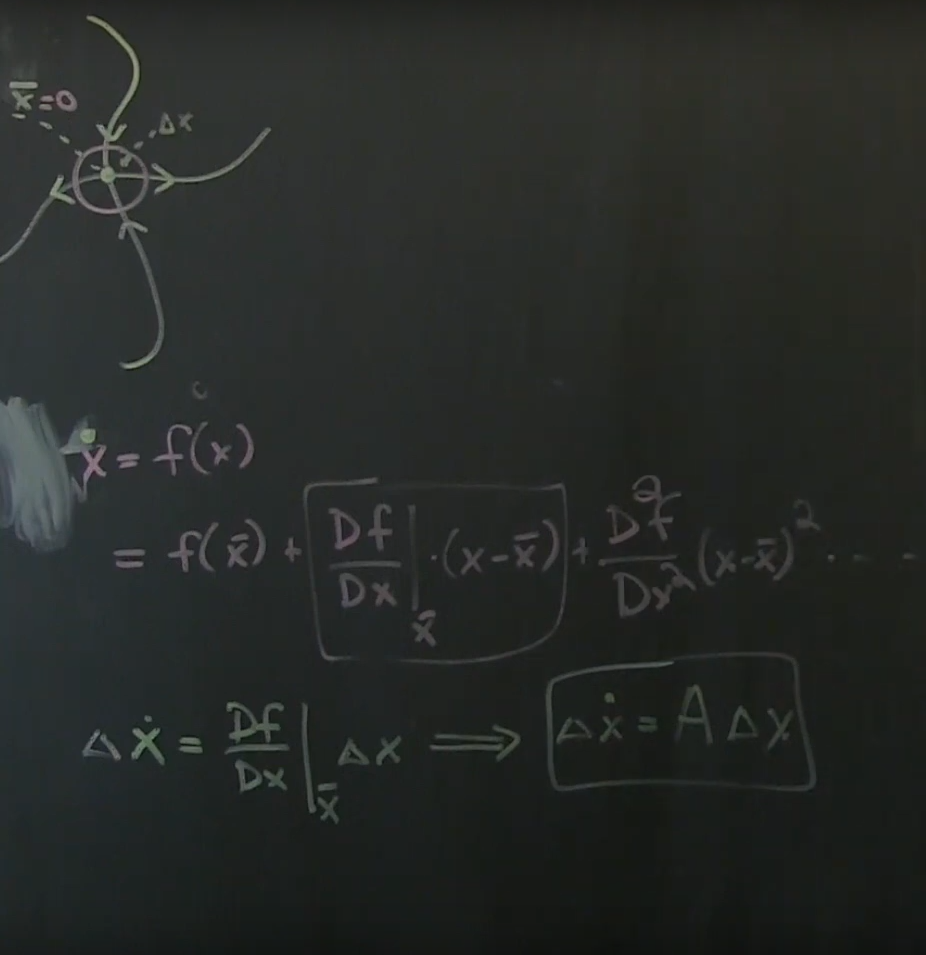 x̄=0
Δx
ẋ = f(x)
= f(x̄) + Df/Dx|x̄ ·(x-x̄) + D²f/Dx² (x-x̄)² ....
Δẋ = Df/Dx|x̄ Δx ⟹ Δẋ = A Δx